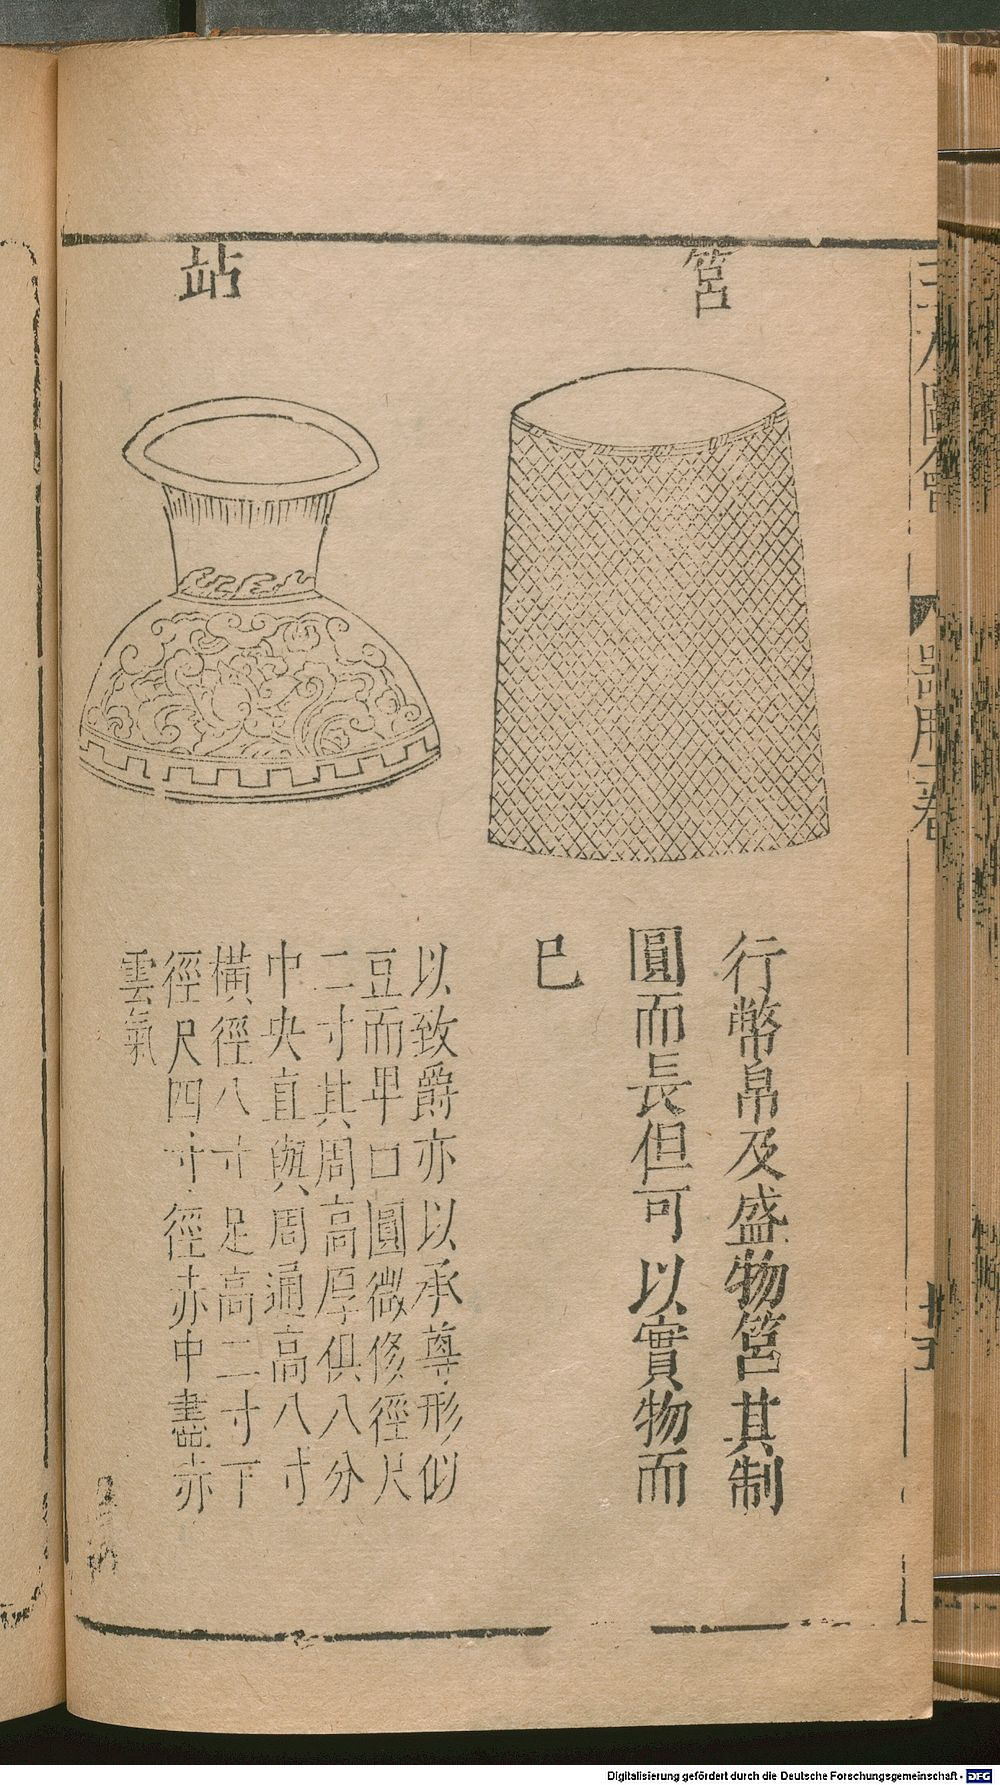 筥
行幣帛及盛物筥其制
圓而長但可以實物而
巳
坫
以致爵亦以承尊形似
豆而卑口圓微侈徑尺
二寸其周高厚俱八分
中央直與周通高八寸
橫徑八寸足高二寸下
徑尺四寸徑赤中畫赤
雲氣
圖會
器用
Digitalisierung gefördert durch die Deutsche Forschungsgemeinschaft - DFG